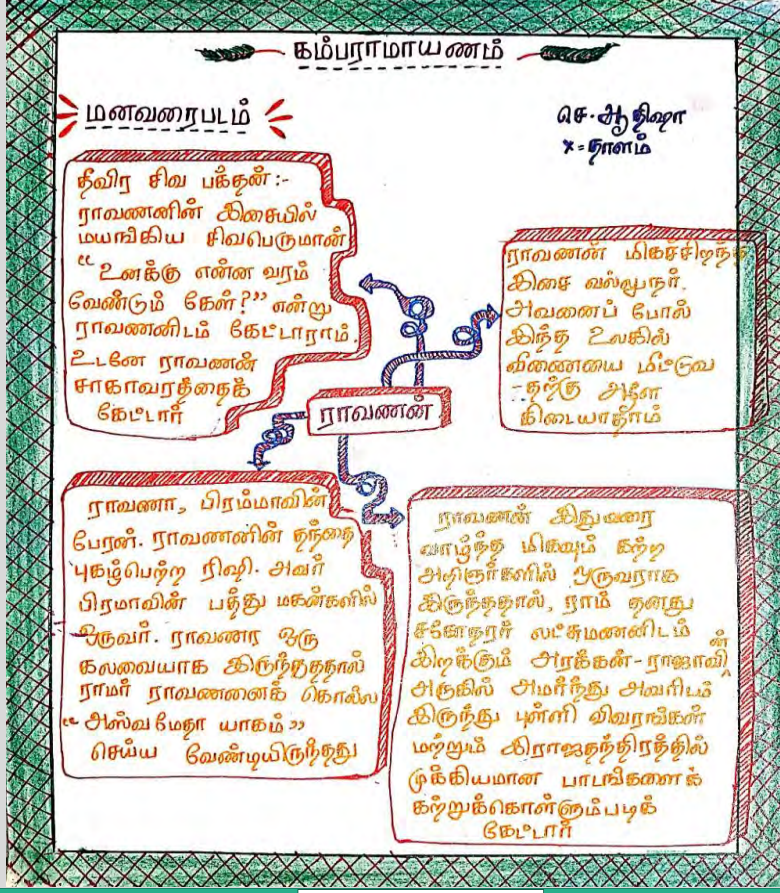 கம்பராமாயணம்
மனவரைபடம்
செ. ஆதிஷா
x = தாளம்
தீவிர சிவ பக்தன் :-
ராவணனின் இசையில்
மயங்கிய சிவபெருமான்
“உனக்கு என்ன வரம்
வேண்டும் கேள்?” என்று
ராவணனிடம் கேட்டாராம்.
உடனே ராவணன்
சாகாவரத்தைக்
கேட்டார்
ராவணன் மிகச்சிறந்த
இசை வல்லுநர்.
அவனைப் போல்
இந்த உலகில்
வீணையை மீட்டுவ
-தற்கு ஆளே
கிடையாதாம்
ராவணன்
ராவணா, பிரம்மாவின்
பேரன். ராவணனின் தந்தை
புகழ்பெற்ற ரிஷி. அவர்
பிரமாவின் பத்து மகன்களில்
ஒருவர். ராவணர ஒரு
கலவையாக இருந்தததால்
ராமர் ராவணனைக் கொல்ல
“அஸ்வ மேதா யாகம்”
செய்ய வேண்டியிருந்தது
ராவணன் இதுவரை
வாழ்ந்த மிகவும் கற்ற
அறிஞர்களில் ஒருவராக
இருந்ததால், ராம் தனது
சகோதரர் லட்சுமணனிடம்
இறக்கும் அரக்கன்-ராஜாவின்
அருகில் அமர்ந்து அவரிடம்
இருந்து புள்ளி விவரங்கள்
மற்றும் இராஜதந்திரத்தில்
முக்கியமான பாடங்களைக்
கற்றுக்கொள்ளும்படிக்
கேட்டார்